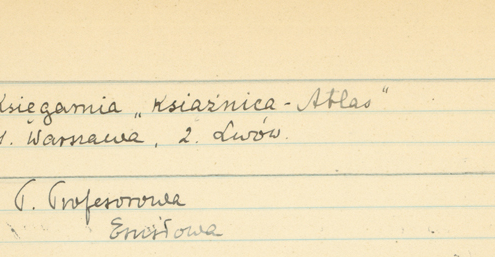 Księgarnia „Książnica - Atlas"
1. Warszawa, 2. Lwów.
P. Profesorowa